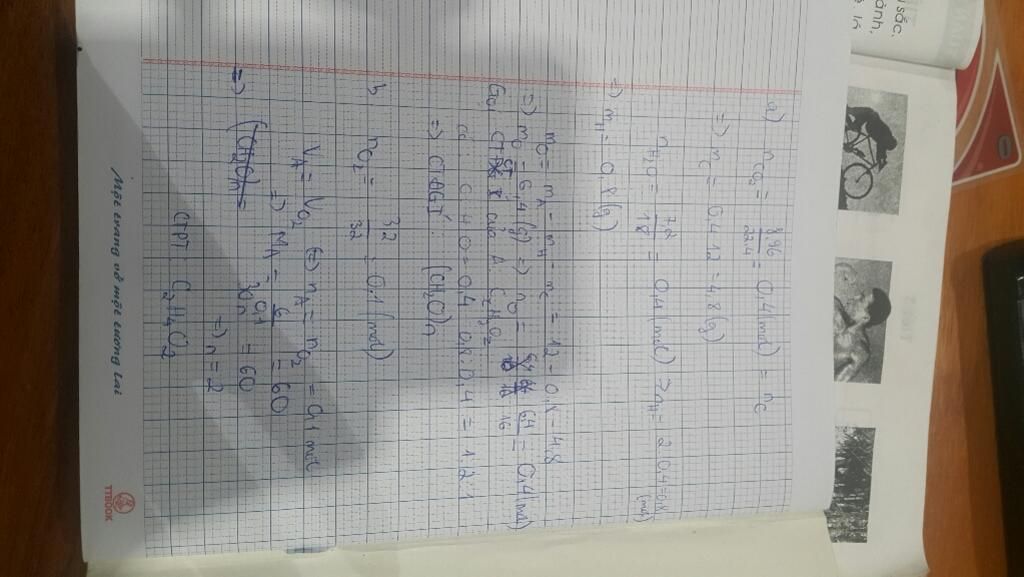 a) nCO2 = 8,96/22,4 = 0,4 (mol) = nC
=> mC = 0,4.12 = 4,8 (g)
nH2O = 7,2/18 = 0,4 (mol) => nH = 2.0,4 = 0,8 (mol)
=> mH = 0,8 (g)
mO = mA - mH - mC = 12 - 0,8 - 4,8
=> mO = 6,4 (g) => nO = 6,4/16 = 0,4 (mol)
Gọi CT của A: CxHyOz
C:H:O = 0,4:0,8:0,4 = 1:2:1
=> CTĐGN: (CH2O)n
b, nO2 = 3,2/32 = 0,1 (mol)
VA = VO2 <=> nA = nO2 = 0,1 mol
=> MA = 6/0,1 = 60
=> (CH2O)n 30n = 60
=> n = 2
CTPT: C2H4O2
Một trang vở một tương lai
TTBOOK
i sắc.
ánh,